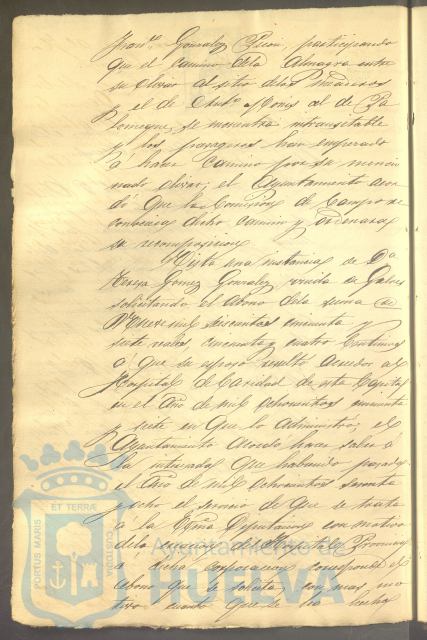 Fran.co Gonzalez Peon, participando
que el camino de la Almagra entre
su olivar al sitio de los Pinareros
y el de Ant.o Mora al de Pa
lomeque, se encuentra intransitable
y los pasageros han empezado
á hacer camino por su mencio
nado olivar; el Ayuntamiento acor
dó que la Comision de Campo re
conozca dicho camino y ordenara
su recomposicion
Vista una instancia de Da
Teresa Gomez Gonzalez, viuda de
solicitando el abono de la suma de
mil seiscientos cincuenta y
siete reales, cincuenta y cuatro centimos
á que su esposo resultó acreedor al
Hospital de Caridad de esta Capital
en el Año de mil ochocientos cincuenta
y siete en que lo administró; el
Ayuntamiento acordó hacer saber á
la interesada que habiendo pasado
el Año de mil ochocientos sesenta
y ocho el servicio de que se trata
á la Exma Diputacion con motivo
de la creacion del Hospital Provincial
á dicha corporacion corresponde el
abono que se solicita, con mas mo
tivo cuanto que se ha hecho
PORTUS MARIS
ET TERRÆ
CUSTODIA
Ayuntamiento de
HUELVA